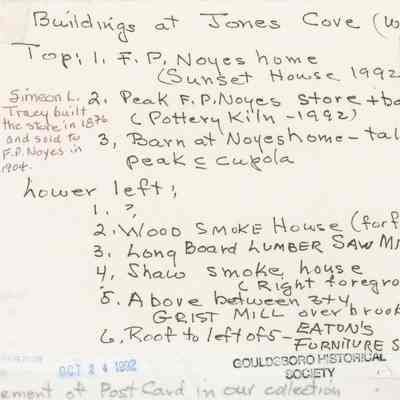 Buildings at Jones Cove (W
Top: 1. F.P. Noyes home
(Sunset House 1992
Simeon L.
Tracy built
the store in 1876
and sold to
F.P. Noyes in
1904.
2. Peak F.P. Noyes store + ba
(Pottery Kiln - 1992)
3, Barn at Noyes home - tal
peak c cupola
Lower left;
1. ?,
2. WOOD SMOKE HOUSE (for f
3. Long Board LUMBER SAW MI
4, Shaw smoke house
(Right foregro
5. Above between 3+4,
GRIST MILL over brook
6. Roof to left of 5 - EATON'S
FURNITURE S
OCT 24 1992
GOULDSBORO HISTORICAL
SOCIETY
ement of Post Card in our collection